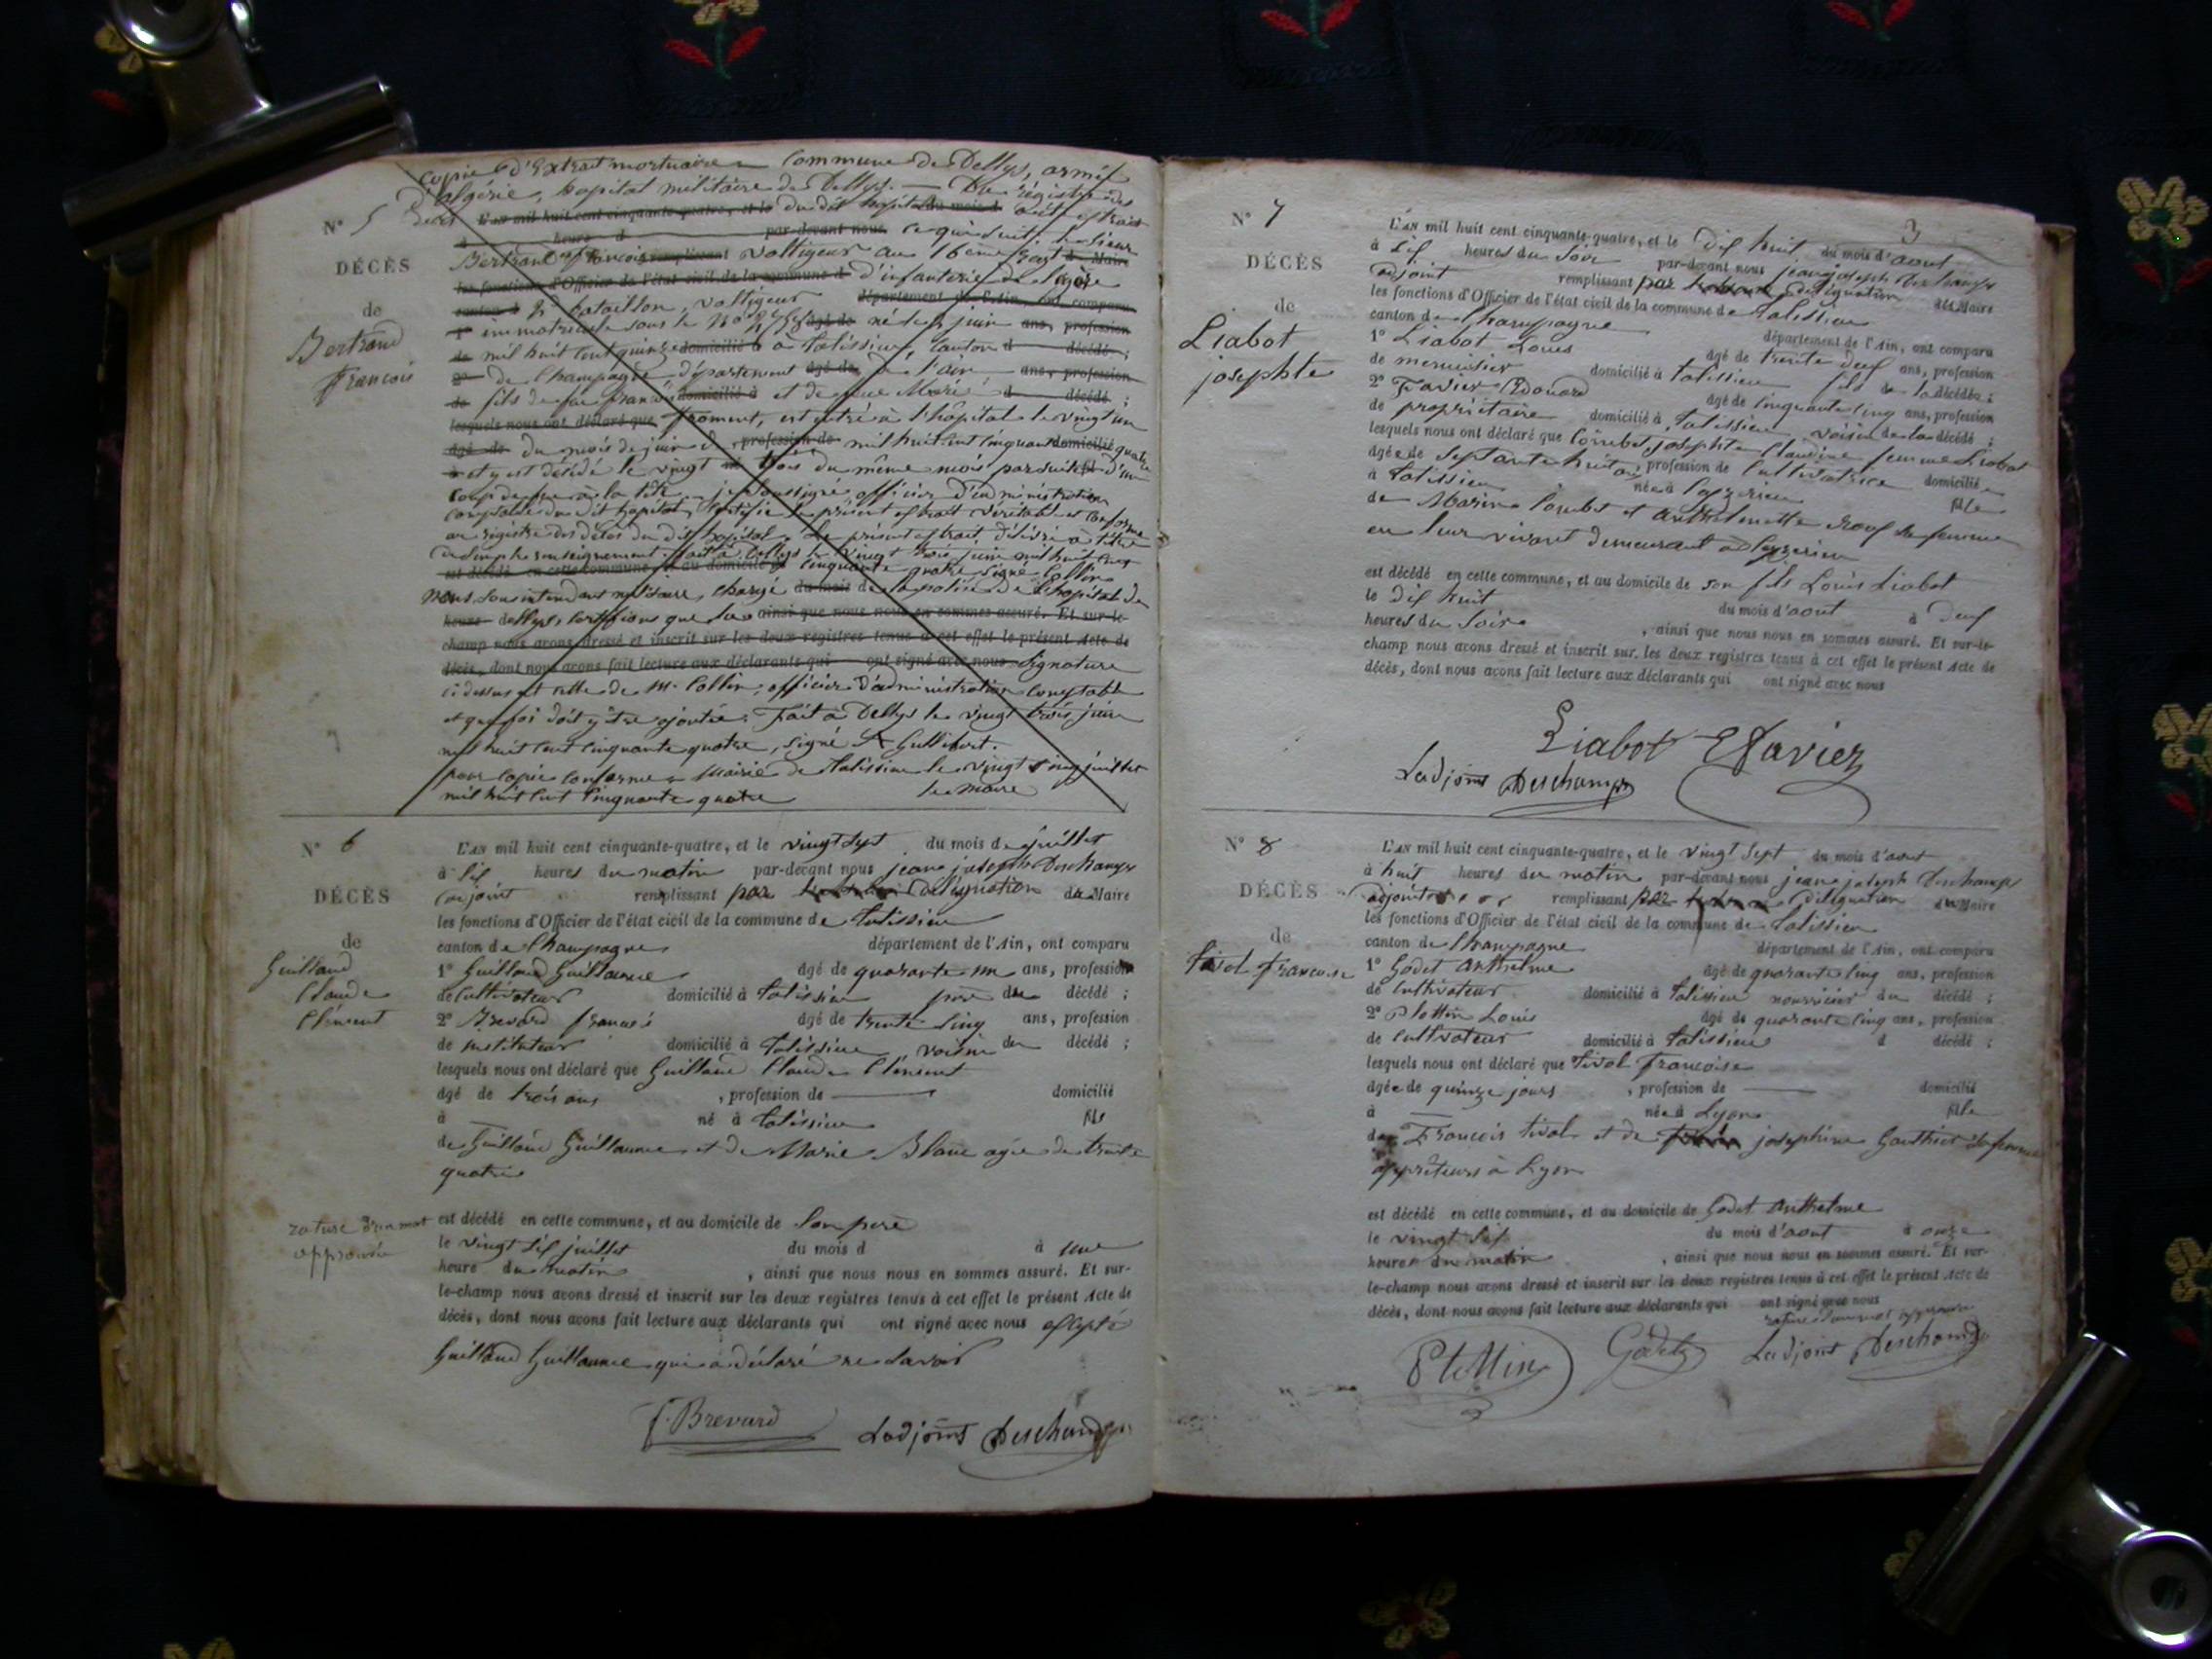 copie d'Extrait mortuaire Commune de Dellys, armée
d'algérie, hopital militaire de Dellys. Du régistre des
N° 5 décès L'AN mil huit cent cinquante-quatre, et le du dit hopital du mois d a été extrait
à heure d par-devant nous ce qui suit; le sieur
Bertrand françois remplissant voltigeur au 16eme Regt de Maire
DÉCÈS les fonctions d'Officier de l'état civil de la commune d d'infanterie de légère
canton d bataillon, voltigeur département de l'Ain, ont comparu
de 1° immatriculé sous le N° âgé de né le juin ans, profession
Bertrand de mil huit cent quinze domicilié à à talissieu, canton d décédé ;
françois 2° de Champagne département âgé de de l'ain ans, profession
de fils de feu françois domicilié à et de feue Marie d décédé ;
lesquels nous ont déclaré que froment, est entré à l'hôpital le vingt un
âgé de du mois de juin profession de mil huit cent cinquante domicilié quatre
et y est décédé le vingt trois du même mois par suite d'un
coup de feu à la tête je soussigné officier d'administration
comptable du dit hopital, certifie le présent extrait véritable et conforme
au régistre des décès du dit hopital. Le présent extrait délivré à titre
de simple renseignement. fait à Dellys le vingt trois juin mil huit cent
est décédé en cette commune, et au domicile d cinquante quatre signé Collin
Nous sous intendant militaire, chargé du mois de la police de l'hopital de
heure dellys, certifions que la ainsi que nous nous en sommes assuré. Et sur-le-
champ nous avons dressé et inscrit sur les deux registres tenus à cet effet le présent Acte de
décès, dont nous avons fait lecture aux déclarants qui ont signé avec nous signature
ci dessus est celle de Mr Collin, officier d'administration comptable
et que foi doit y être ajoutée. Fait à Dellys le vingt trois juin
mil huit cent cinquante quatre, signé
pour copie conforme Mairie de talissieu le vingt juillet
mil huit cent cinquante quatre le maire
N° 6 L'AN mil huit cent cinquante-quatre, et le vingt sept du mois de juillet
à six heures du matin par-devant nous jean joseph Deschamps
DÉCÈS adjoint remplissant par délégation du Maire
les fonctions d'Officier de l'état civil de la commune de talissieu
de canton de Champagne département de l'Ain, ont comparu
Guilland 1° Guilland Guillaume âgé de quarante un ans, profession
Claude de cultivateur domicilié à talissieu père du décédé ;
Clément 2° Brevard françois âgé de trente cinq ans, profession
de instituteur domicilié à talissieu voisin du décédé ;
lesquels nous ont déclaré que Guilland Claude Clément
âgé de trois ans , profession de — domicilié
à né à talissieu fils
de Guilland Guillaume et de Marie Blanc agée de trente
quatre
rature d'un mot est décédé en cette commune, et au domicile de son père
approuvée le vingt six juillet du mois d à une
heure du matin , ainsi que nous nous en sommes assuré. Et sur-
le-champ nous avons dressé et inscrit sur les deux registres tenus à cet effet le présent Acte de
décès, dont nous avons fait lecture aux déclarants qui ont signé avec nous excepté
Guilland Guillaume qui a déclaré ne savoir
f. Brevard Ladjoint Deschamps
3
N° 7 L'AN mil huit cent cinquante-quatre, et le dix huit du mois d'aout
à six heures du soir par-devant nous jean joseph Deschamps
DÉCÈS adjoint remplissant par délégation du Maire
les fonctions d'Officier de l'état civil de la commune de talissieu
de canton de Champagne département de l'Ain, ont comparu
Liabot 1° Liabot Louis âgé de trente deux ans, profession
josephte de menuisier domicilié à talissieu fils de la décédée ;
2° Favier Edouard âgé de cinquante cinq ans, profession
de propriétaire domicilié à talissieu voisin de la décédé ;
lesquels nous ont déclaré que Combet josephte Claudine femme Liabot
âgée de septante huit ans, profession de Cultivatrice domiciliée
à talissieu née à Ceyzerieu fille
de Marin Combet et Anthelmette Roux sa femme
en leur vivant demeurant à Ceyzerieu
est décédé en cette commune, et au domicile de son fils Louis Liabot
le dix huit du mois d'aout à deux
heures du soir , ainsi que nous nous en sommes assuré. Et sur-le-
champ nous avons dressé et inscrit sur les deux registres tenus à cet effet le présent Acte de
décès, dont nous avons fait lecture aux déclarants qui ont signé avec nous
Liabot EFavier
Ladjoint Deschamps
N° 8 L'AN mil huit cent cinquante-quatre, et le vingt sept du mois d'aout
à huit heures du matin par-devant nous jean joseph Deschamps
DÉCÈS adjoint remplissant par délégation du Maire
les fonctions d'Officier de l'état civil de la commune de talissieu
de canton de Champagne département de l'Ain, ont comparu
tivol francoise 1° Godet Anthelme âgé de quarante cinq ans, profession
de cultivateur domicilié à talissieu nourricier du décédé ;
2° Plottin Louis âgé de quarante cinq ans, profession
de cultivateur domicilié à talissieu d décédé ;
lesquels nous ont déclaré que tivol francoise
âgée de quinze jours , profession de — domicilié
à née à Lyon fille
de Francois tivol et de josephine Gauthier sa femme
apprêteurs à Lyon
est décédé en cette commune, et au domicile de Godet Anthelme
le vingt six du mois d'aout à onze
heures du matin , ainsi que nous nous en sommes assuré. Et sur-
le-champ nous avons dressé et inscrit sur les deux registres tenus à cet effet le présent Acte de
décès, dont nous avons fait lecture aux déclarants qui ont signé avec nous
rature d'un mot approuvée
Plottin Godet Ladjoint Deschamps